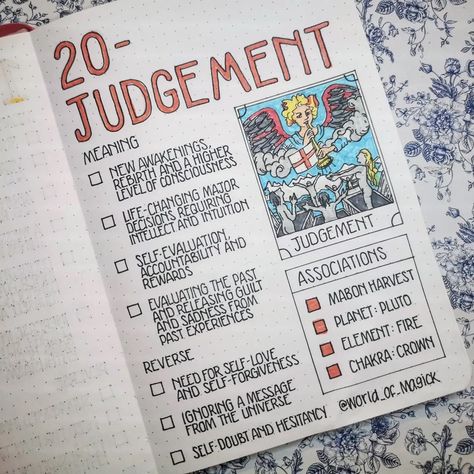 20-
JUDGEMENT
MEANING
NEW AWAKENINGS,
REBIRTH AND A HIGHER
LEVEL OF CONSCIOUSNESS
LIFE-CHANGING MAJOR
DECISIONS REQUIRING
INTELLECT AND INTUITION
SELF-EVALUATION,
ACCOUNTABILITY AND
REWARDS
EVALUATING THE PAST
AND RELEASING GUILT
AND SADNESS FROM
PAST EXPERIENCES
REVERSE
NEED FOR SELF-LOVE
AND SELF-FORGIVENESS
IGNORING A MESSAGE
FROM THE UNIVERSE
SELF-DOUBT AND HESITANCY
JUDGEMENT
ASSOCIATIONS
MABON HARVEST
PLANET: PLUTO
ELEMENT: FIRE
CHAKRA: CROWN
@WORLD_OF_MAGICK